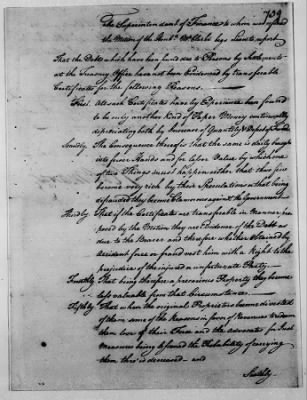 739
The Superintendant of Finance to whom was referred
the Motion of the Hon. Mr. Clarke begs Leave to report
That the Debts which have been found due to Persons by Settlements
at the Treasury Office have not been Evidenced by transferable
Certificates for the following Reasons.
First. Al such Certificates have by Experience been found
to be only another Kind of Paper Money continually
depreciating both by Increase of Quantity & Defect of Funds
Secondly. The Consequence thereof is that the same is daily bought
into fewer Hands and for lesser Value by which one
of two Things must happen either that those few
become very rich by these Speculations or that being
defrauded they become Clamorous against the Government
Thirdly That if the Certificates are transferable in Manner
posed by the Motion they are Evidence of the Debt as
due to the Bearer and therefore whether obtained by
accident force or fraud vest him with a Right to the
prejudice of the injured or unfortunate Party.
Fourthly That being therefore a precarious Property they become
less valuable from that Circumstance
Fifthly That when the original Proprietors become divested
of them some of the Reasons in favor of Revenues
lose of their Force and the advocates for such
Measures being lessened the Probability of carrying
them thro is decreased and
Sixthly